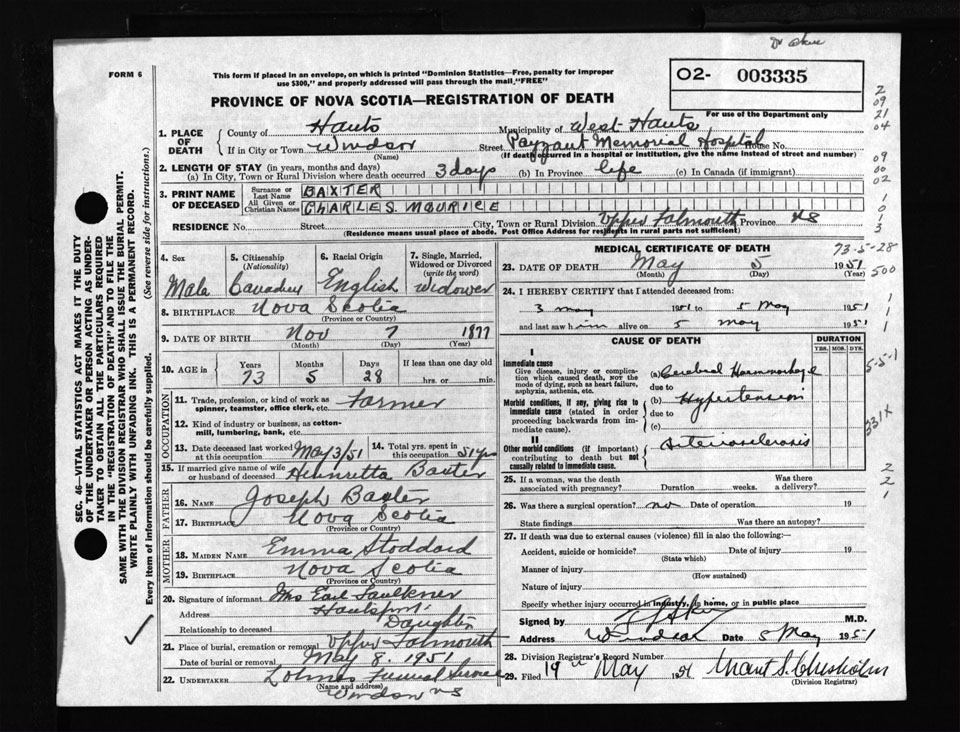 Dr
FORM 6
This form if placed in an envelope, on which is printed "Dominion Statistics—Free, penalty for improper
use $300," and properly addressed will pass through the mail, "FREE"
O2- 003335
PROVINCE OF NOVA SCOTIA—REGISTRATION OF DEATH
For use of the Department only
1. PLACE OF DEATH
County of Hants Municipality of West Hants
If in City or Town Windsor Street Payzant Memorial Hospital House No.
(Name) (If death occurred in a hospital or institution, give the name instead of street and number)
2. LENGTH OF STAY (in years, months and days)
(a) In City, Town or Rural Division where death occurred 3 days (b) In Province life (c) In Canada (if immigrant)
3. PRINT NAME OF DECEASED
Surname or Last Name BAXTER
All Given or Christian Names CHARLES MOURICE
RESIDENCE No. Street City, Town or Rural Division Upper Falmouth Province NS
(Residence means usual place of abode. Post Office Address for residents in rural parts not sufficient)
4. Sex 5. Citizenship (Nationality) 6. Racial Origin 7. Single, Married, Widowed or Divorced (write the word)
Male Canadian English Widower
8. BIRTHPLACE Nova Scotia
(Province or Country)
9. DATE OF BIRTH Nov 7 1877
(Month) (Day) (Year)
10. AGE in Years Months Days If less than one day old
73 5 28 hrs. or min.
OCCUPATION
11. Trade, profession, or kind of work as spinner, teamster, office clerk, etc. Farmer
12. Kind of industry or business, as cotton-mill, lumbering, bank, etc.
13. Date deceased last worked at this occupation May/3/51 14. Total yrs. spent in this occupation 51 yrs
15. If married give name of wife or husband of deceased Henrietta Baxter
FATHER
16. Name Joseph Baxter
17. Birthplace Nova Scotia
(Province or Country)
MOTHER
18. MAIDEN NAME Emma Stoddard
19. BIRTHPLACE Nova Scotia
(Province or Country)
20. Signature of informant Mrs Earl Faulkner
Address Hantsport
Relationship to deceased Daughter
21. Place of burial, cremation or removal Upper Falmouth
Date of burial or removal May 8. 1951
22. UNDERTAKER Funeral Service
(Name and address)
Windsor NS
MEDICAL CERTIFICATE OF DEATH
73-5-28
23. DATE OF DEATH May 5 1951
(Month) (Day) (Year)
24. I HEREBY CERTIFY that I attended deceased from:
3 May 1951 to 5 May 1951
and last saw him alive on 5 May 1951
CAUSE OF DEATH DURATION
YRS. MOS. DYS.
I
Immediate cause
Give disease, injury or complication which caused death, NOT the mode of dying, such as heart failure, asphyxia, asthenia, etc.
(a) Cerebral Haemmorhage
due to
Morbid conditions, if any, giving rise to immediate cause (stated in order proceeding backwards from immediate cause).
(b) Hypertension
due to
(c)
II
Other morbid conditions (if important) contributing to death but not causally related to immediate cause.
Arteriosclerosis
25. If a woman, was the death associated with pregnancy? Duration weeks. Was there a delivery?
26. Was there a surgical operation? no Date of operation 19
State findings Was there an autopsy?
27. If death was due to external causes (violence) fill in also the following:—
Accident, suicide or homicide? Date of injury 19
(State which)
Manner of injury
(How sustained)
Nature of injury
Specify whether injury occurred in industry, in home, or in public place
Signed by M.D.
Address Windsor Date 5 May 1951
28. Division Registrar's Record Number
29. Filed 19th May 1951 Grant S. Chisholm
(Division Registrar)
2
09
21
04
09
00
02
1
0
1
3
500
1
1
1
5-5-1
331X
2
2
1
SEC. 46—VITAL STATISTICS ACT MAKES IT THE DUTY
OF THE UNDERTAKER OR PERSON ACTING AS UNDER-
TAKER TO OBTAIN ALL THE PARTICULARS REQUIRED
IN THE "REGISTRATION OF DEATH" AND TO FILE THE
SAME WITH THE DIVISION REGISTRAR WHO SHALL ISSUE THE BURIAL PERMIT.
WRITE PLAINLY WITH UNFADING INK. THIS IS A PERMANENT RECORD.
Every item of information should be carefully supplied. (See reverse side for instructions.)